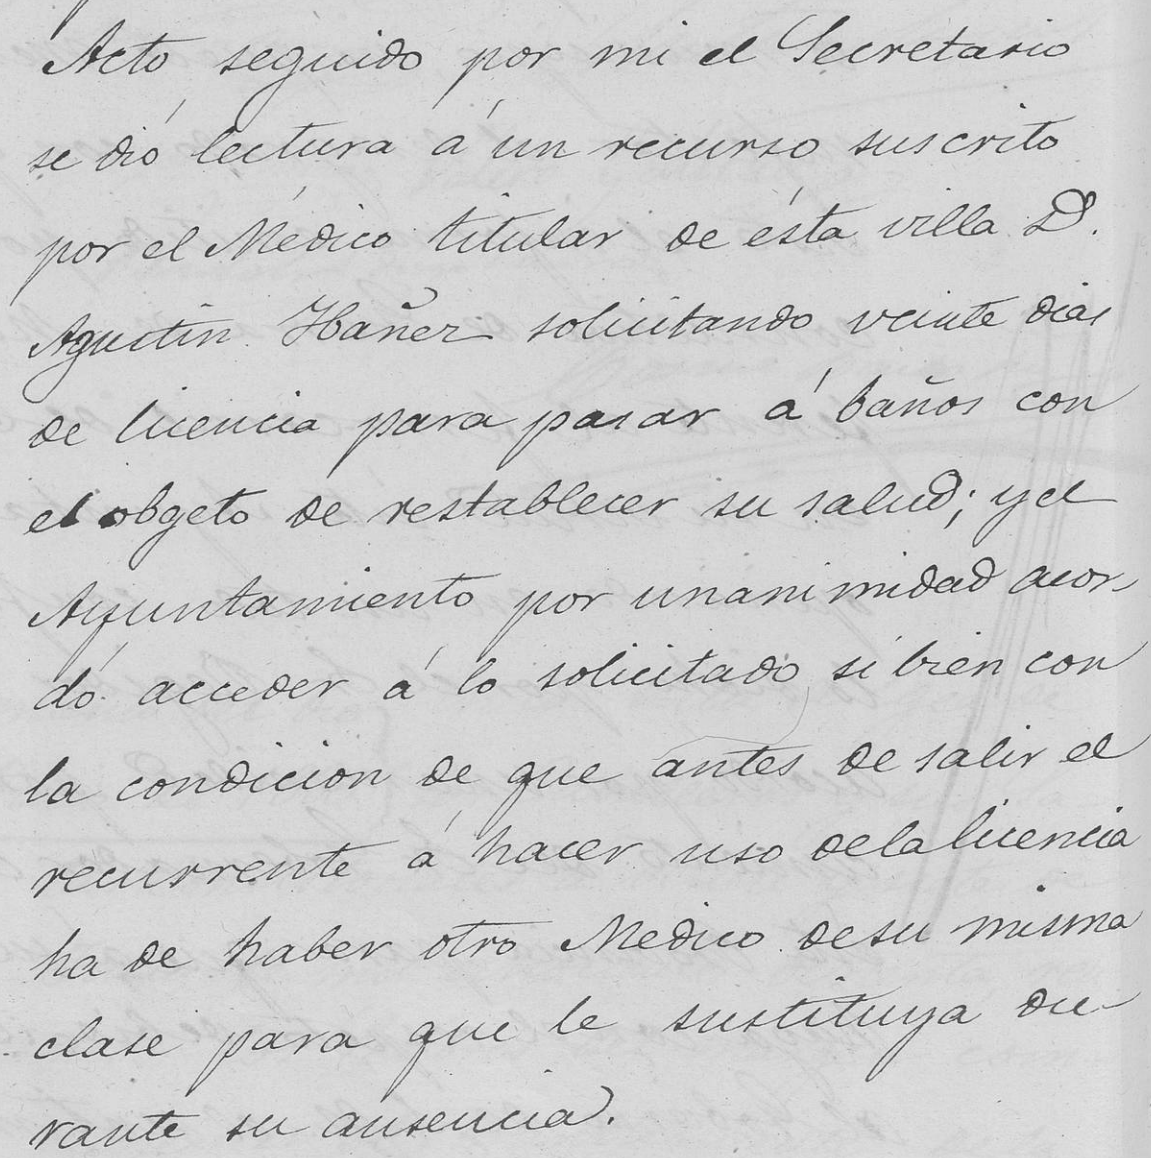 Acto seguido por mi el Secretario
se dió lectura á un recurso suscrito
por el Médico titular de ésta villa D.
Agustin Ibañez solicitando veinte dias
de licencia para pasar á baños con
el obgeto de restablecer su salud; y el
Ayuntamiento por unanimidad acor-
dó acceder á lo solicitado, si bien con
la condicion de que antes de salir el
recurrente á hacer uso de la licencia
ha de haber otro Medico de su misma
clase para que le sustituya du-
rante su ausencia.